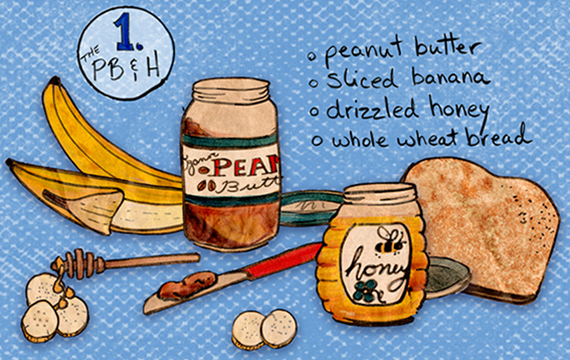 1.
THE
PB & H
o peanut butter
o sliced banana
o drizzled honey
o whole wheat bread
PEA
Butt
honey